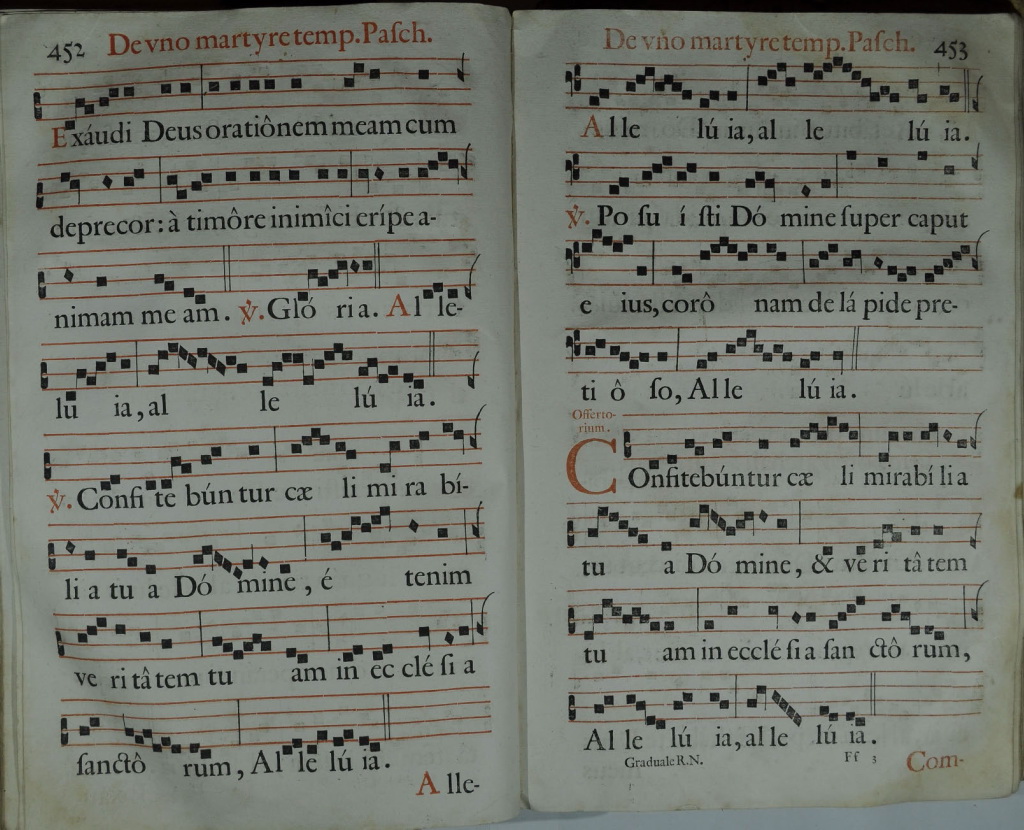 452 De vno martyre temp. Paſch.
Exáudi Deus oratiônem meam cum
deprecor: à timôre inimîci erípe a-
nimam me am. ℣. Gló ria. Al le-
lú ia, al le lú ia.
℣. Confi te bún tur cæ li mi ra bí-
li a tu a Dó mine, é tenim
ve ri tâ tem tu am in ec clé ſi a
ſanctô rum, Al le lú ia.
A lle-
De vno martyre temp. Paſch. 453
Al le lú ia, al le lú ia.
℣. Po ſu í ſti Dó mine ſuper caput
e ius, corô nam de lá pide pre-
ti ô ſo, Al le lú ia.
Offerto-
rium.
COnfitebúntur cæ li mirabí li a
tu a Dó mine, & ve ri tâ tem
tu am in ecclé ſi a ſan ctô rum,
Al le lú ia, al le lú ia.
Graduale R.N. Ff 3 Com-